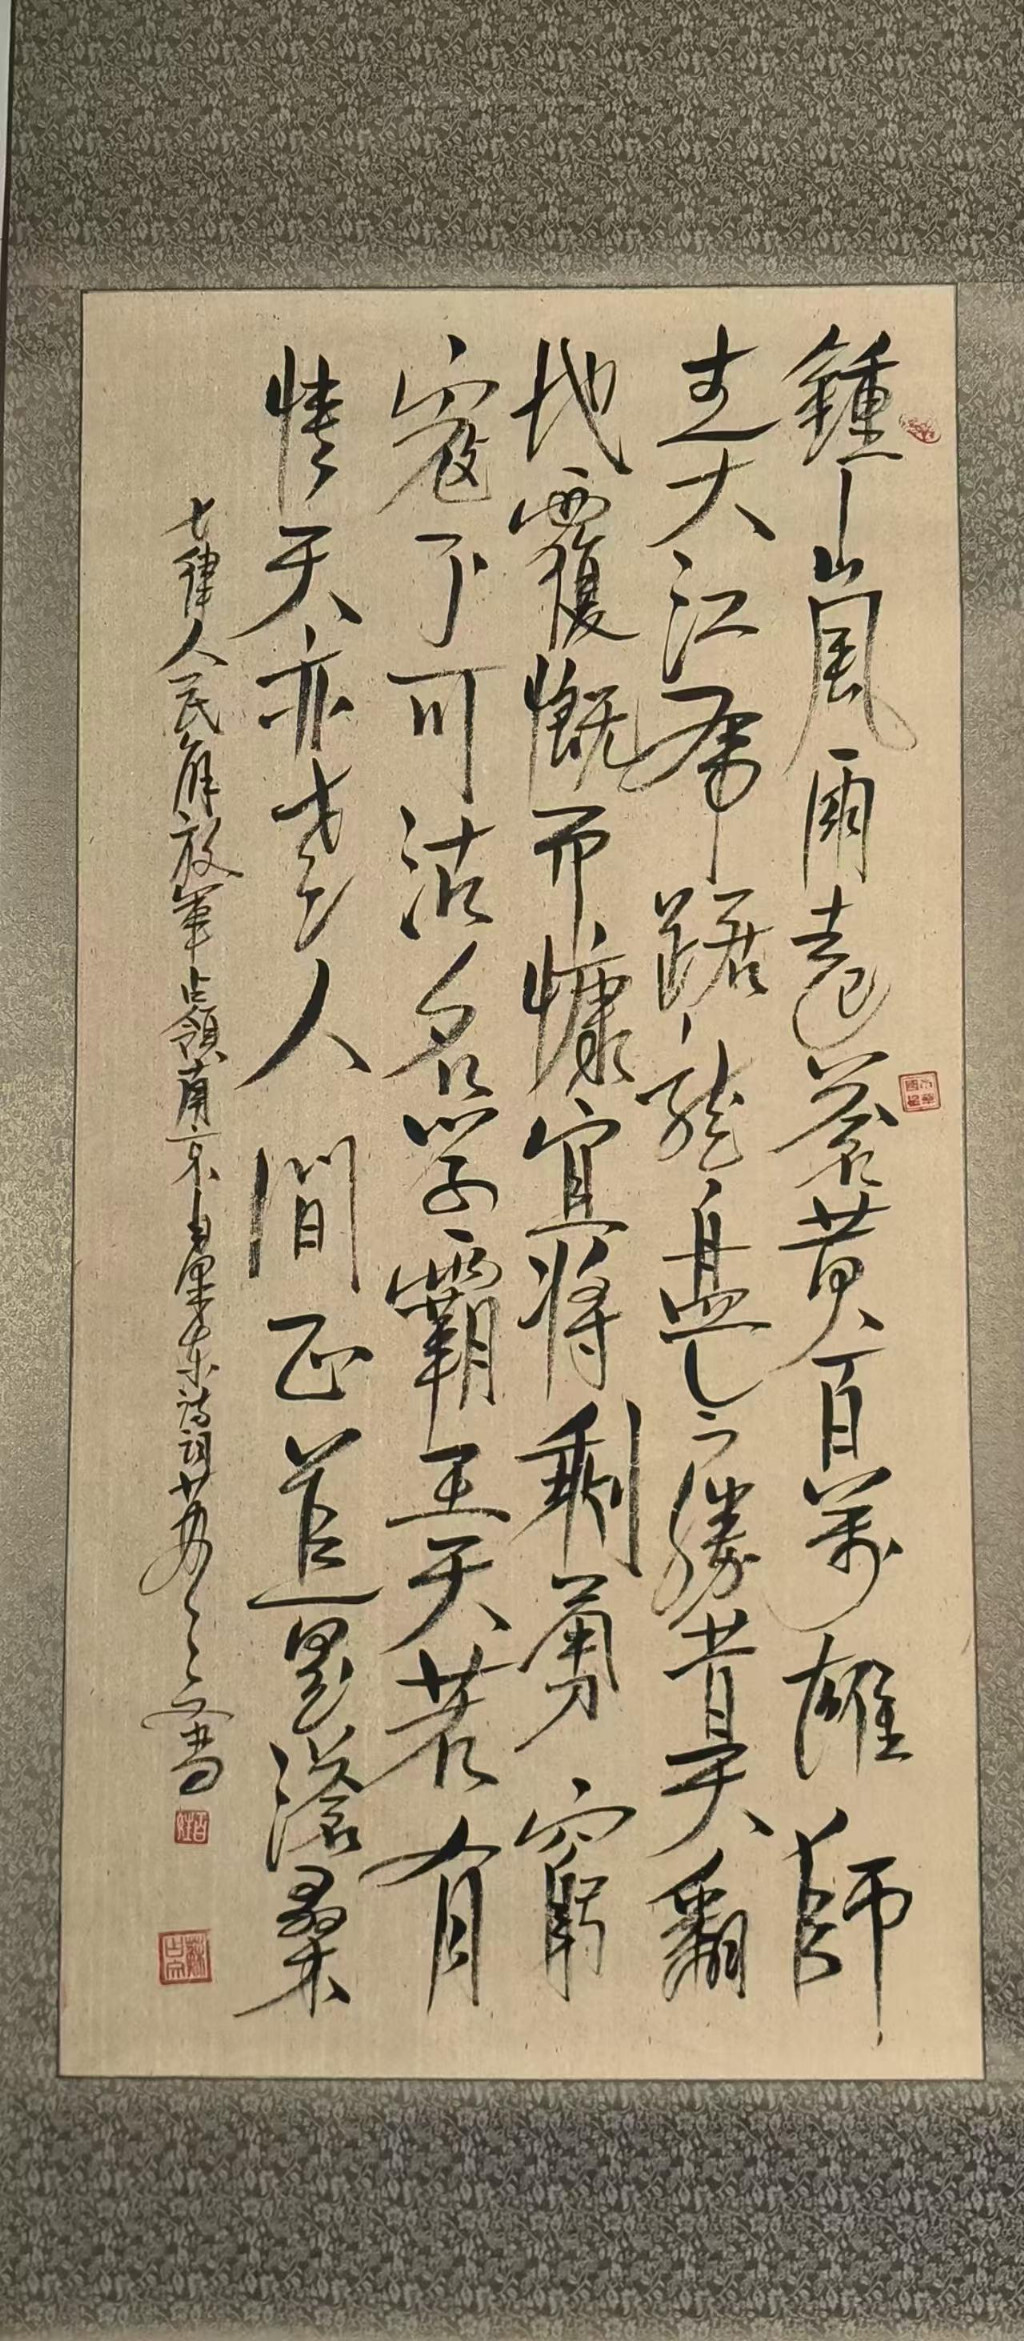 鍾山風雨起蒼黃百萬雄師
過大江虎踞龍盤今勝昔天翻
地覆慨而慷宜將剩勇窮
寇不可沽名學霸王天若有
情天亦老人間正道是滄桑
七律人民解放軍占領南京毛澤東詩詞書